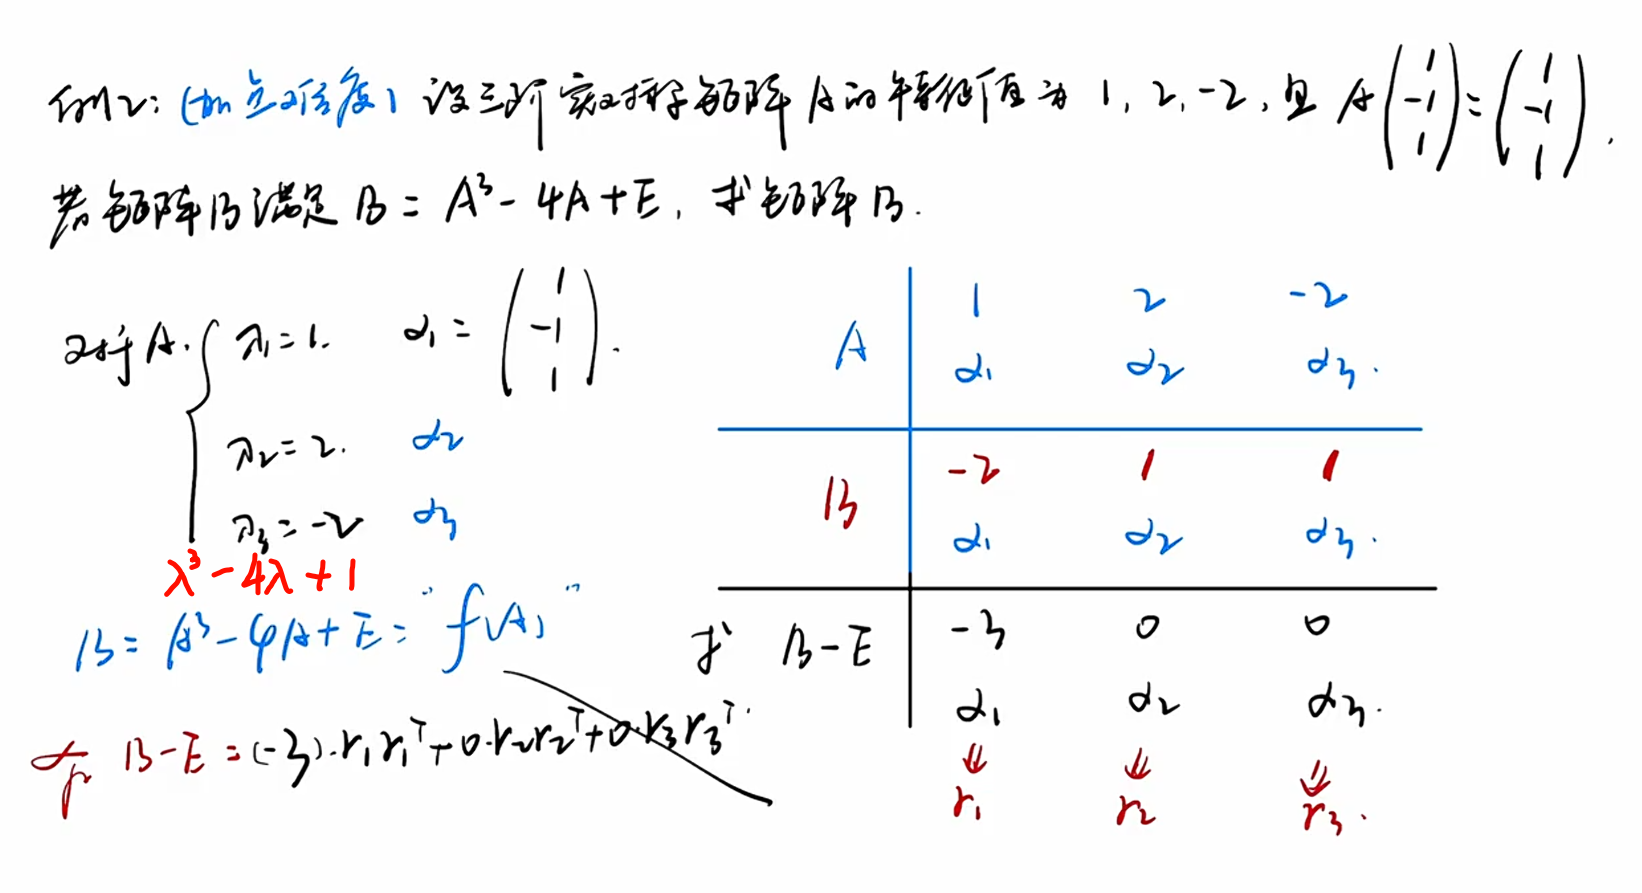 例2:(加点难度)设三阶实对称矩阵A的特征值为 1, 2, -2, 且 A(1 -1 1)=(1 -1 1).
若矩阵B满足 B = A³ - 4A + E, 求矩阵B.
对于A. λ₁=1. α₁ = (1 -1 1).
λ₂=2. α₂
λ₃=-2 α₃
λ³-4λ+1
B = A³-4A+E = "f(A)"
故 B-E = (-3)·r₁r₁ᵀ+0·r₂r₂ᵀ+0·r₃r₃ᵀ.
A 1 2 -2
α₁ α₂ α₃.
B -2 1 1
α₁ α₂ α₃.
求 B-E -3 0 0
α₁ α₂ α₃.
⇓ ⇓ ⇓
r₁ r₂ r₃.